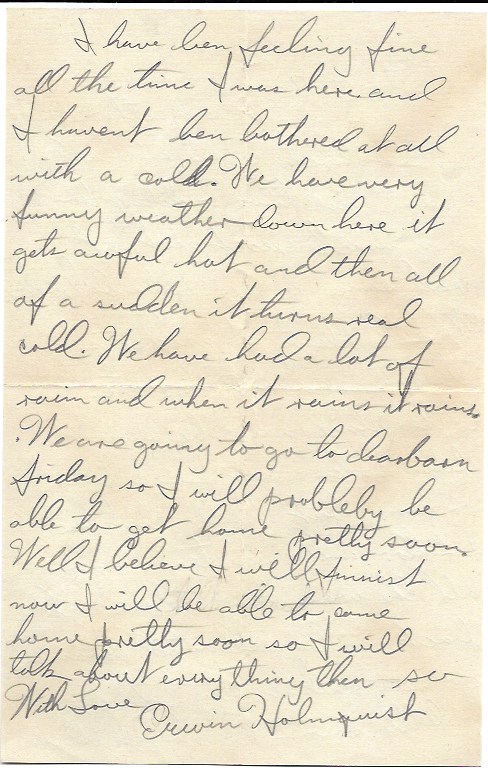 I have ben feeling fine
all the time I was here and
I havent ben bothered at all
with a cold. We have very
funny weather down here it
gets awful hot and then all
of a sudden it turns real
cold. We have had a lot of
rain and when it rains it rains.
We are going to go to dearborn
friday so I will probleby be
able to get home pretty soon.
Well I believe I will finnist
now I will be able to come
home pretty soon so I will
talk about everything then so
With Love
Erwin Holmquist